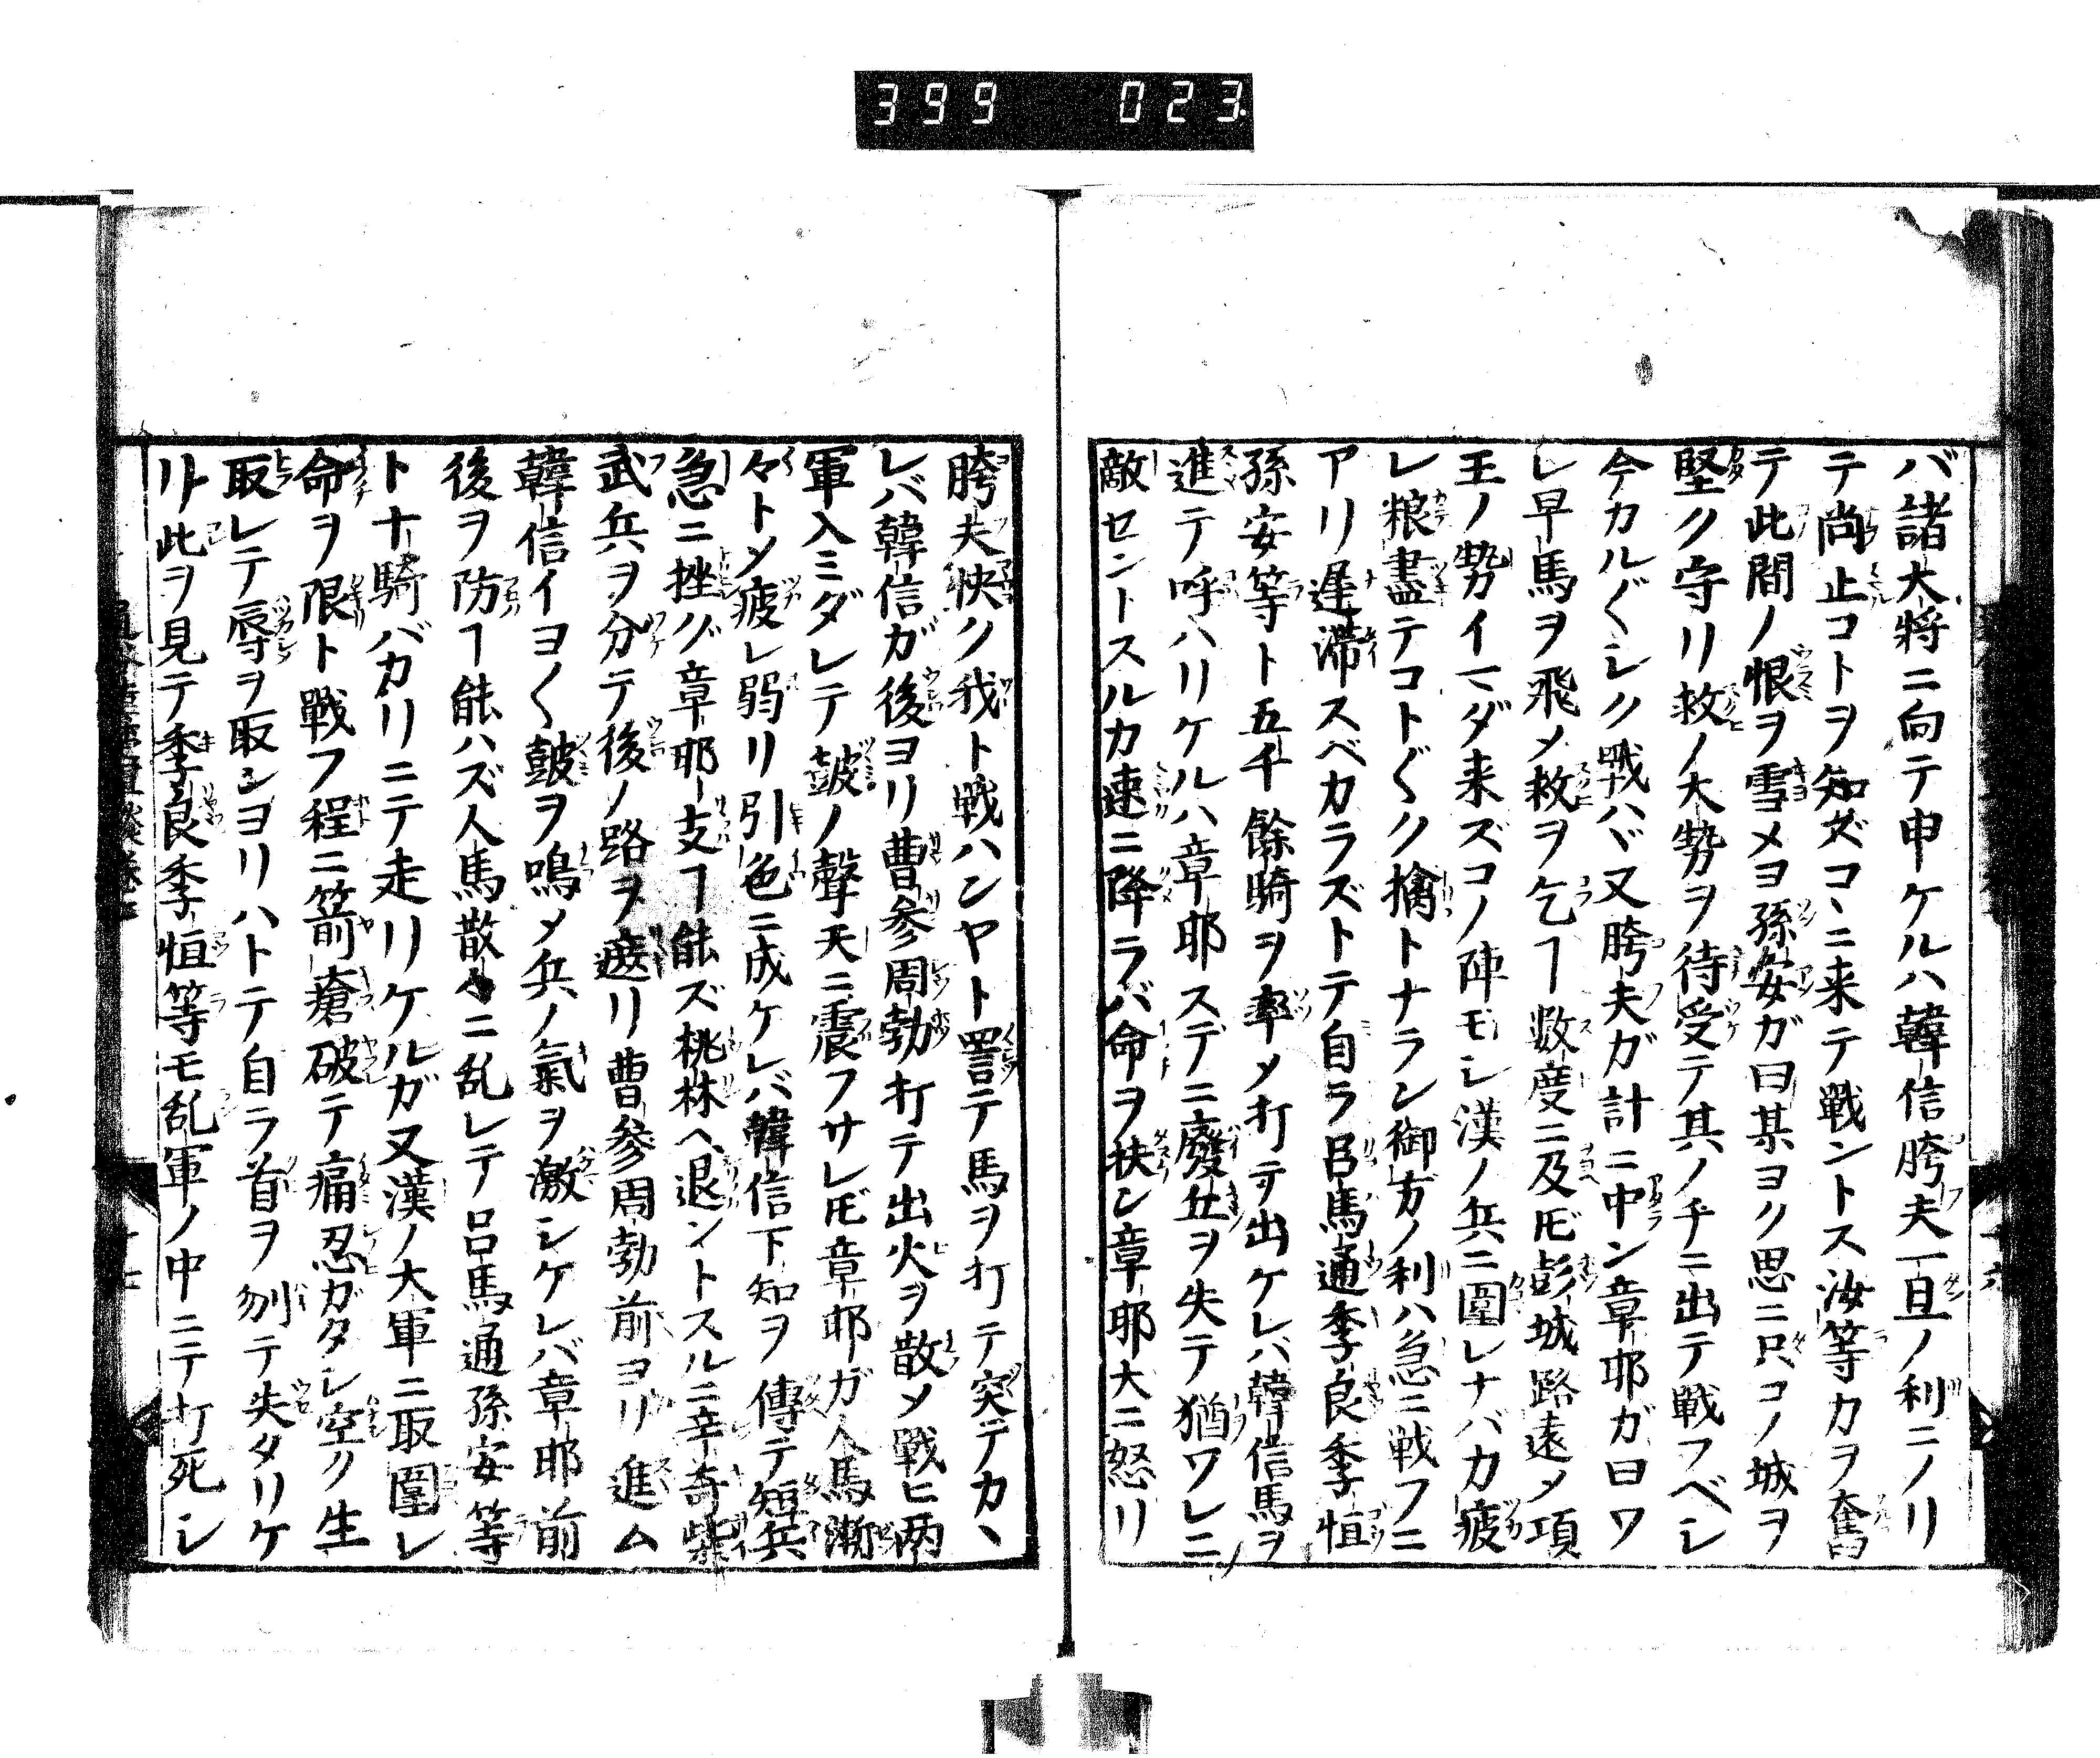 399 023
バ諸大将ニ向テ申ケルハ韓信胯夫一旦ノ利ニノリ
テ尚止コトヲ知ズコヽニ来テ戦ントス汝等力ヲ奮
テ此間ノ恨ヲ雪メヨ孫安ガ曰某ヨク思ニ只コノ城ヲ
堅ク守リ救ノ大勢ヲ待受テ其ノチニ出テ戦フベシ
今カル〲シク戦ハヾ又胯夫ガ計ニ中ン章邯ガ曰ワ
レ早馬ヲ飛メ救ヲ乞ヿ数度ニ及𪜈彭城路遠メ項
王ノ勢イマダ来ズコノ陣モシ漢ノ兵ニ圍レナバカ疲
レ粮盡テコト〲ク擒トナラン御方ノ利ハ急ニ戦フニ
アリ遅滞スベカラズトテ自ラ呂馬通季良季恒
孫安等ト五千餘騎ヲ率メ打テ出ケレバ韓信馬ヲ
進テ呼ハリケルハ章邯スデニ廢丘ヲ失テ猶ワレニ
敵セントスルカ速ニ降ラバ命ヲ扶ン章邯大ニ怒リ
胯夫快ク我ト戦ハンヤト詈テ馬ヲ打テ突テカヽ
レバ韓信ガ後ヨリ曹参周勃打テ出火ヲ散メ戦ヒ両
軍入ミダレテ皷ノ聲天ニ震フサレ𪜈章邯ガ人馬漸
々トメ疲レ弱リ引色ニ成ケレバ韓信下知ヲ傳テ短兵
急ニ挫グ章邯支ヿ能ズ桃林ヘ退ントスルニ辛奇柴
武兵ヲ分テ後ノ路ヲ遮リ曹参周勃前ヨリ進ム
韓信イヨ〱皷ヲ鳴メ兵ノ氣ヲ激シケレバ章邯前
後ヲ防ヿ能ハズ人馬散々ニ乱レテ呂馬通孫安等
ト十騎バカリニテ走リケルガ又漢ノ大軍ニ取圍レ
命ヲ限ト戦フ程ニ箭瘡破テ痛忍ガタシ空ク生
取レテ辱ヲ取ンヨリハトテ自ラ首ヲ刎テ失タリケ
リ此ヲ見テ季良季恒等モ乱軍ノ中ニテ打死シ